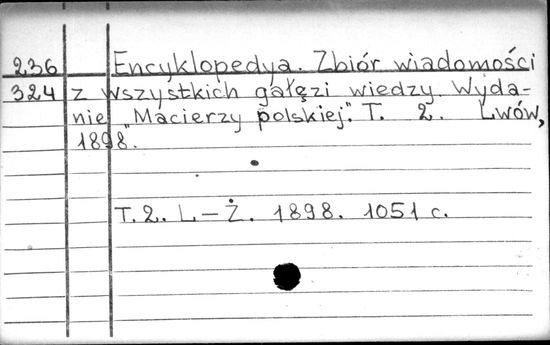 236 Encyklopedya. Zbiór wiadomości
324 z wszystkich gałęzi wiedzy. Wyda-
nie "Macierzy polskiej". T. 2. Lwów,
1898.
T. 2. L – Ż. 1898. 1051 c.